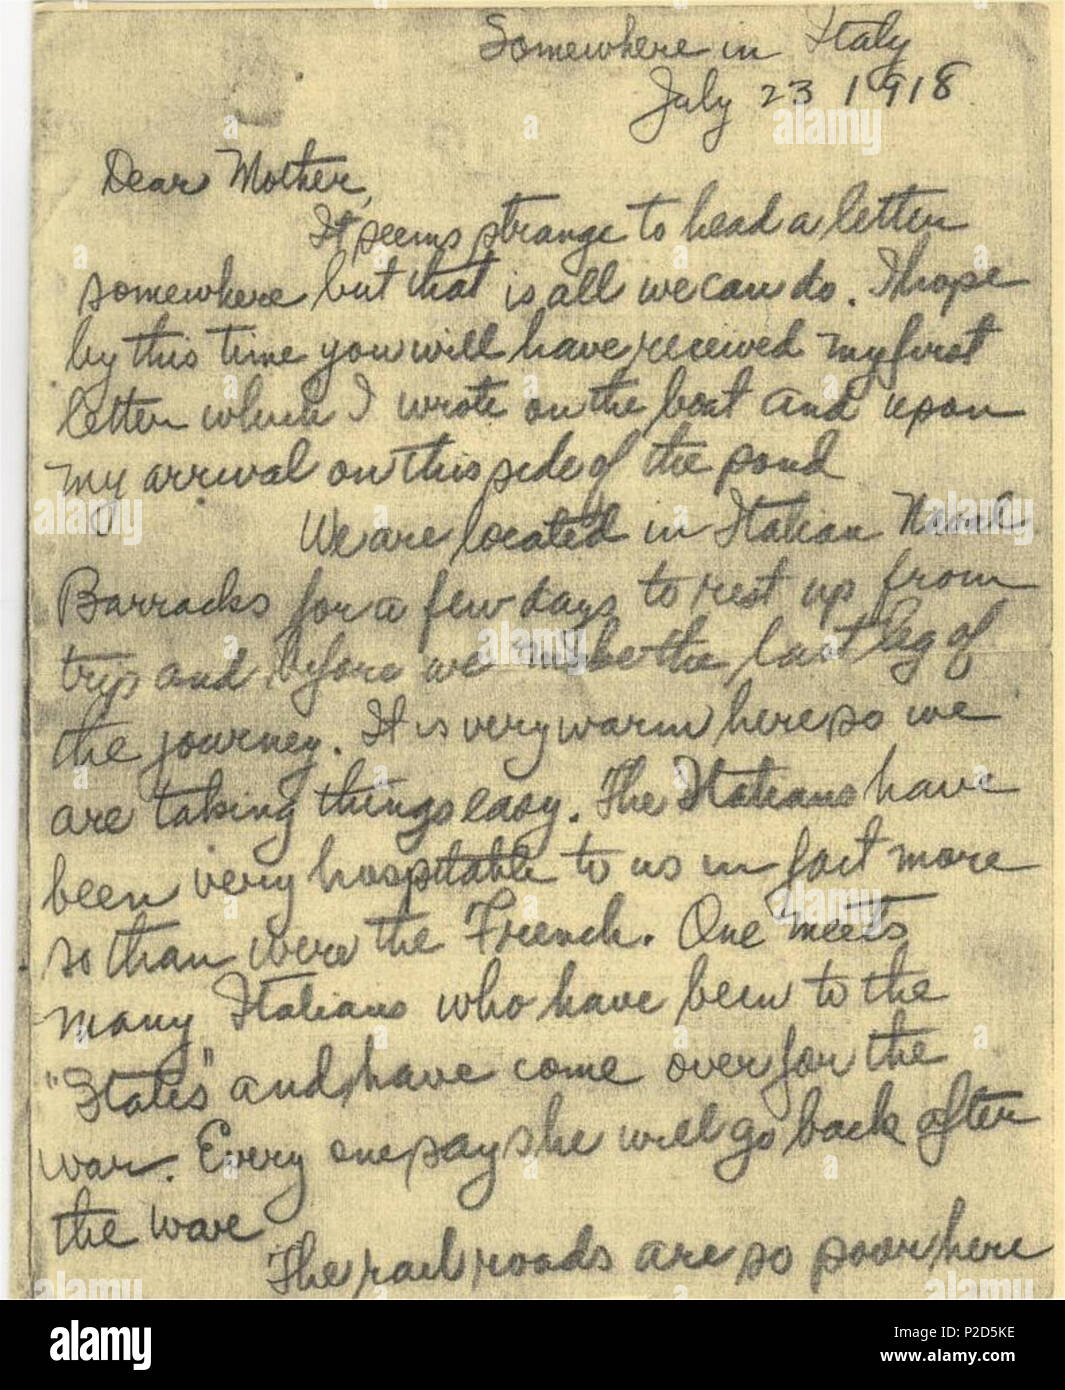 Somewhere in Italy
July 23 1918
Dear Mother,
It seems strange to head a letter
somewhere but that is all we can do. I hope
by this time you will have received my first
letter which I wrote on the boat and upon
my arrival on this side of the pond
We are located in Italian Naval
Barracks for a few days to rest up from
trip and before we make the last leg of
the journey. It is very warm here so we
are taking things easy. The Italians have
been very hospitable to us in fact more
so than were the French. One meets
many Italians who have been to the
"States" and have come over for the
war. Every one says he will go back after
the war
The railroads are so poor here
alamy
Image ID: 2P2D5KE
www.alamy.com